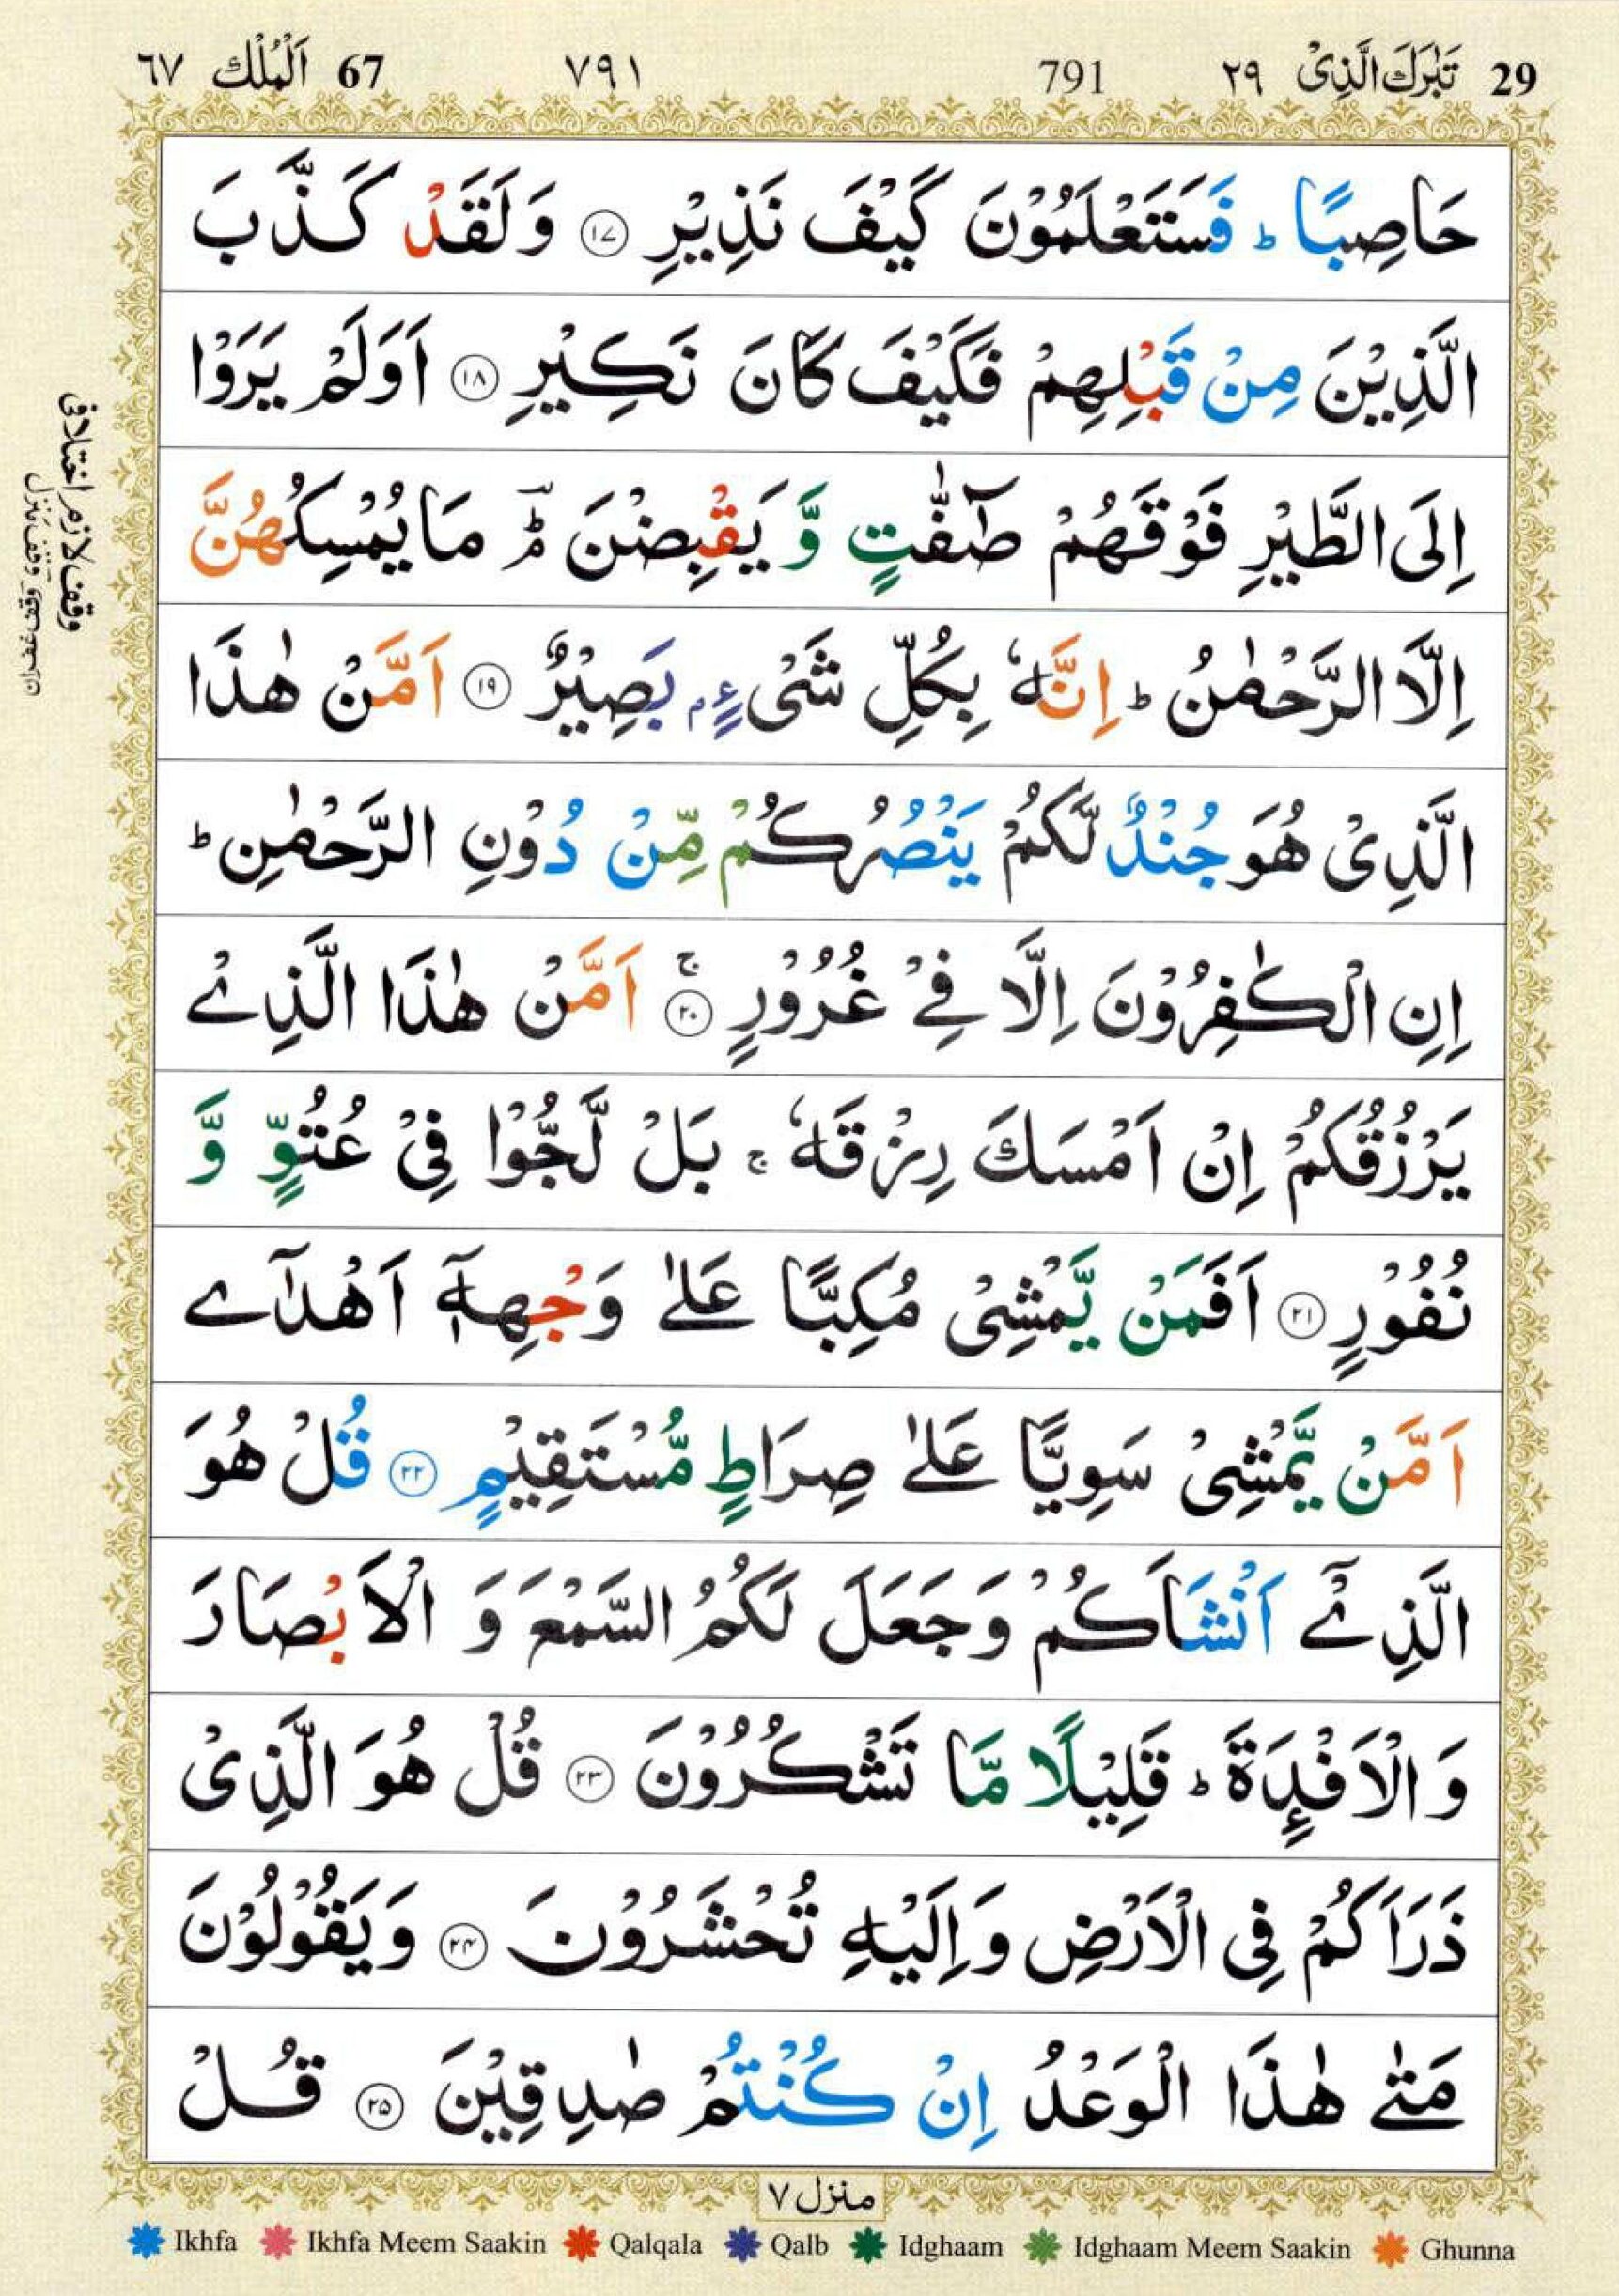 29 تَبٰرَكَ الَّذِىْ ٢٩ 791 ٧٩١ 67 اَلْمُلْك ٦٧
حَاصِبًا ؕ فَسَتَعْلَمُوْنَ كَيْفَ نَذِيْرِ ۝۱۷ وَلَقَدْ كَذَّبَ
الَّذِيْنَ مِنْ قَبْلِهِمْ فَكَيْفَ كَانَ نَكِيْرِ ۝۱۸ اَوَلَمْ يَرَوْا
اِلَى الطَّيْرِ فَوْقَهُمْ صٰٓفّٰتٍ وَّ يَقْبِضْنَ ؔۘؕ مَا يُمْسِكُهُنَّ
اِلَّا الرَّحْمٰنُ ؕ اِنَّهٗ بِكُلِّ شَىْءٍۭ بَصِيْرٌ ۝۱۹ اَمَّنْ هٰذَا
الَّذِىْ هُوَ جُنْدٌ لَّكُمْ يَنْصُرُكُمْ مِّنْ دُوْنِ الرَّحْمٰنِ ؕ
اِنِ الْكٰفِرُوْنَ اِلَّا فِےْ غُرُوْرٍ ۚ۝۲۰ اَمَّنْ هٰذَا الَّذِےْ
يَرْزُقُكُمْ اِنْ اَمْسَكَ رِزْقَهٗ ۚ بَلْ لَّجُّوْا فِىْ عُتُوٍّ وَّ
نُفُوْرٍ ۝۲۱ اَفَمَنْ يَّمْشِىْ مُكِبًّا عَلٰى وَجْهِهٖۤ اَهْدٰٓے
اَمَّنْ يَّمْشِىْ سَوِيًّا عَلٰى صِرَاطٍ مُّسْتَقِيْمٍ ۝۲۲ قُلْ هُوَ
الَّذِےْۤ اَنْشَاَكُمْ وَجَعَلَ لَكُمُ السَّمْعَ وَ الْاَبْصَارَ
وَ الْاَفْـِٕدَةَ ؕ قَلِيْلًا مَّا تَشْكُرُوْنَ ۝۲۳ قُلْ هُوَ الَّذِىْ
ذَرَاَكُمْ فِى الْاَرْضِ وَاِلَيْهِ تُحْشَرُوْنَ ۝۲۴ وَيَقُوْلُوْنَ
مَتٰے هٰذَا الْوَعْدُ اِنْ كُنْتُمْ صٰدِقِيْنَ ۝۲۵ قُلْ
وقف لازم اختلافی
وقف غفران وقف منزل
منزل ۷
Ikhfa Ikhfa Meem Saakin Qalqala Qalb Idghaam Idghaam Meem Saakin Ghunna